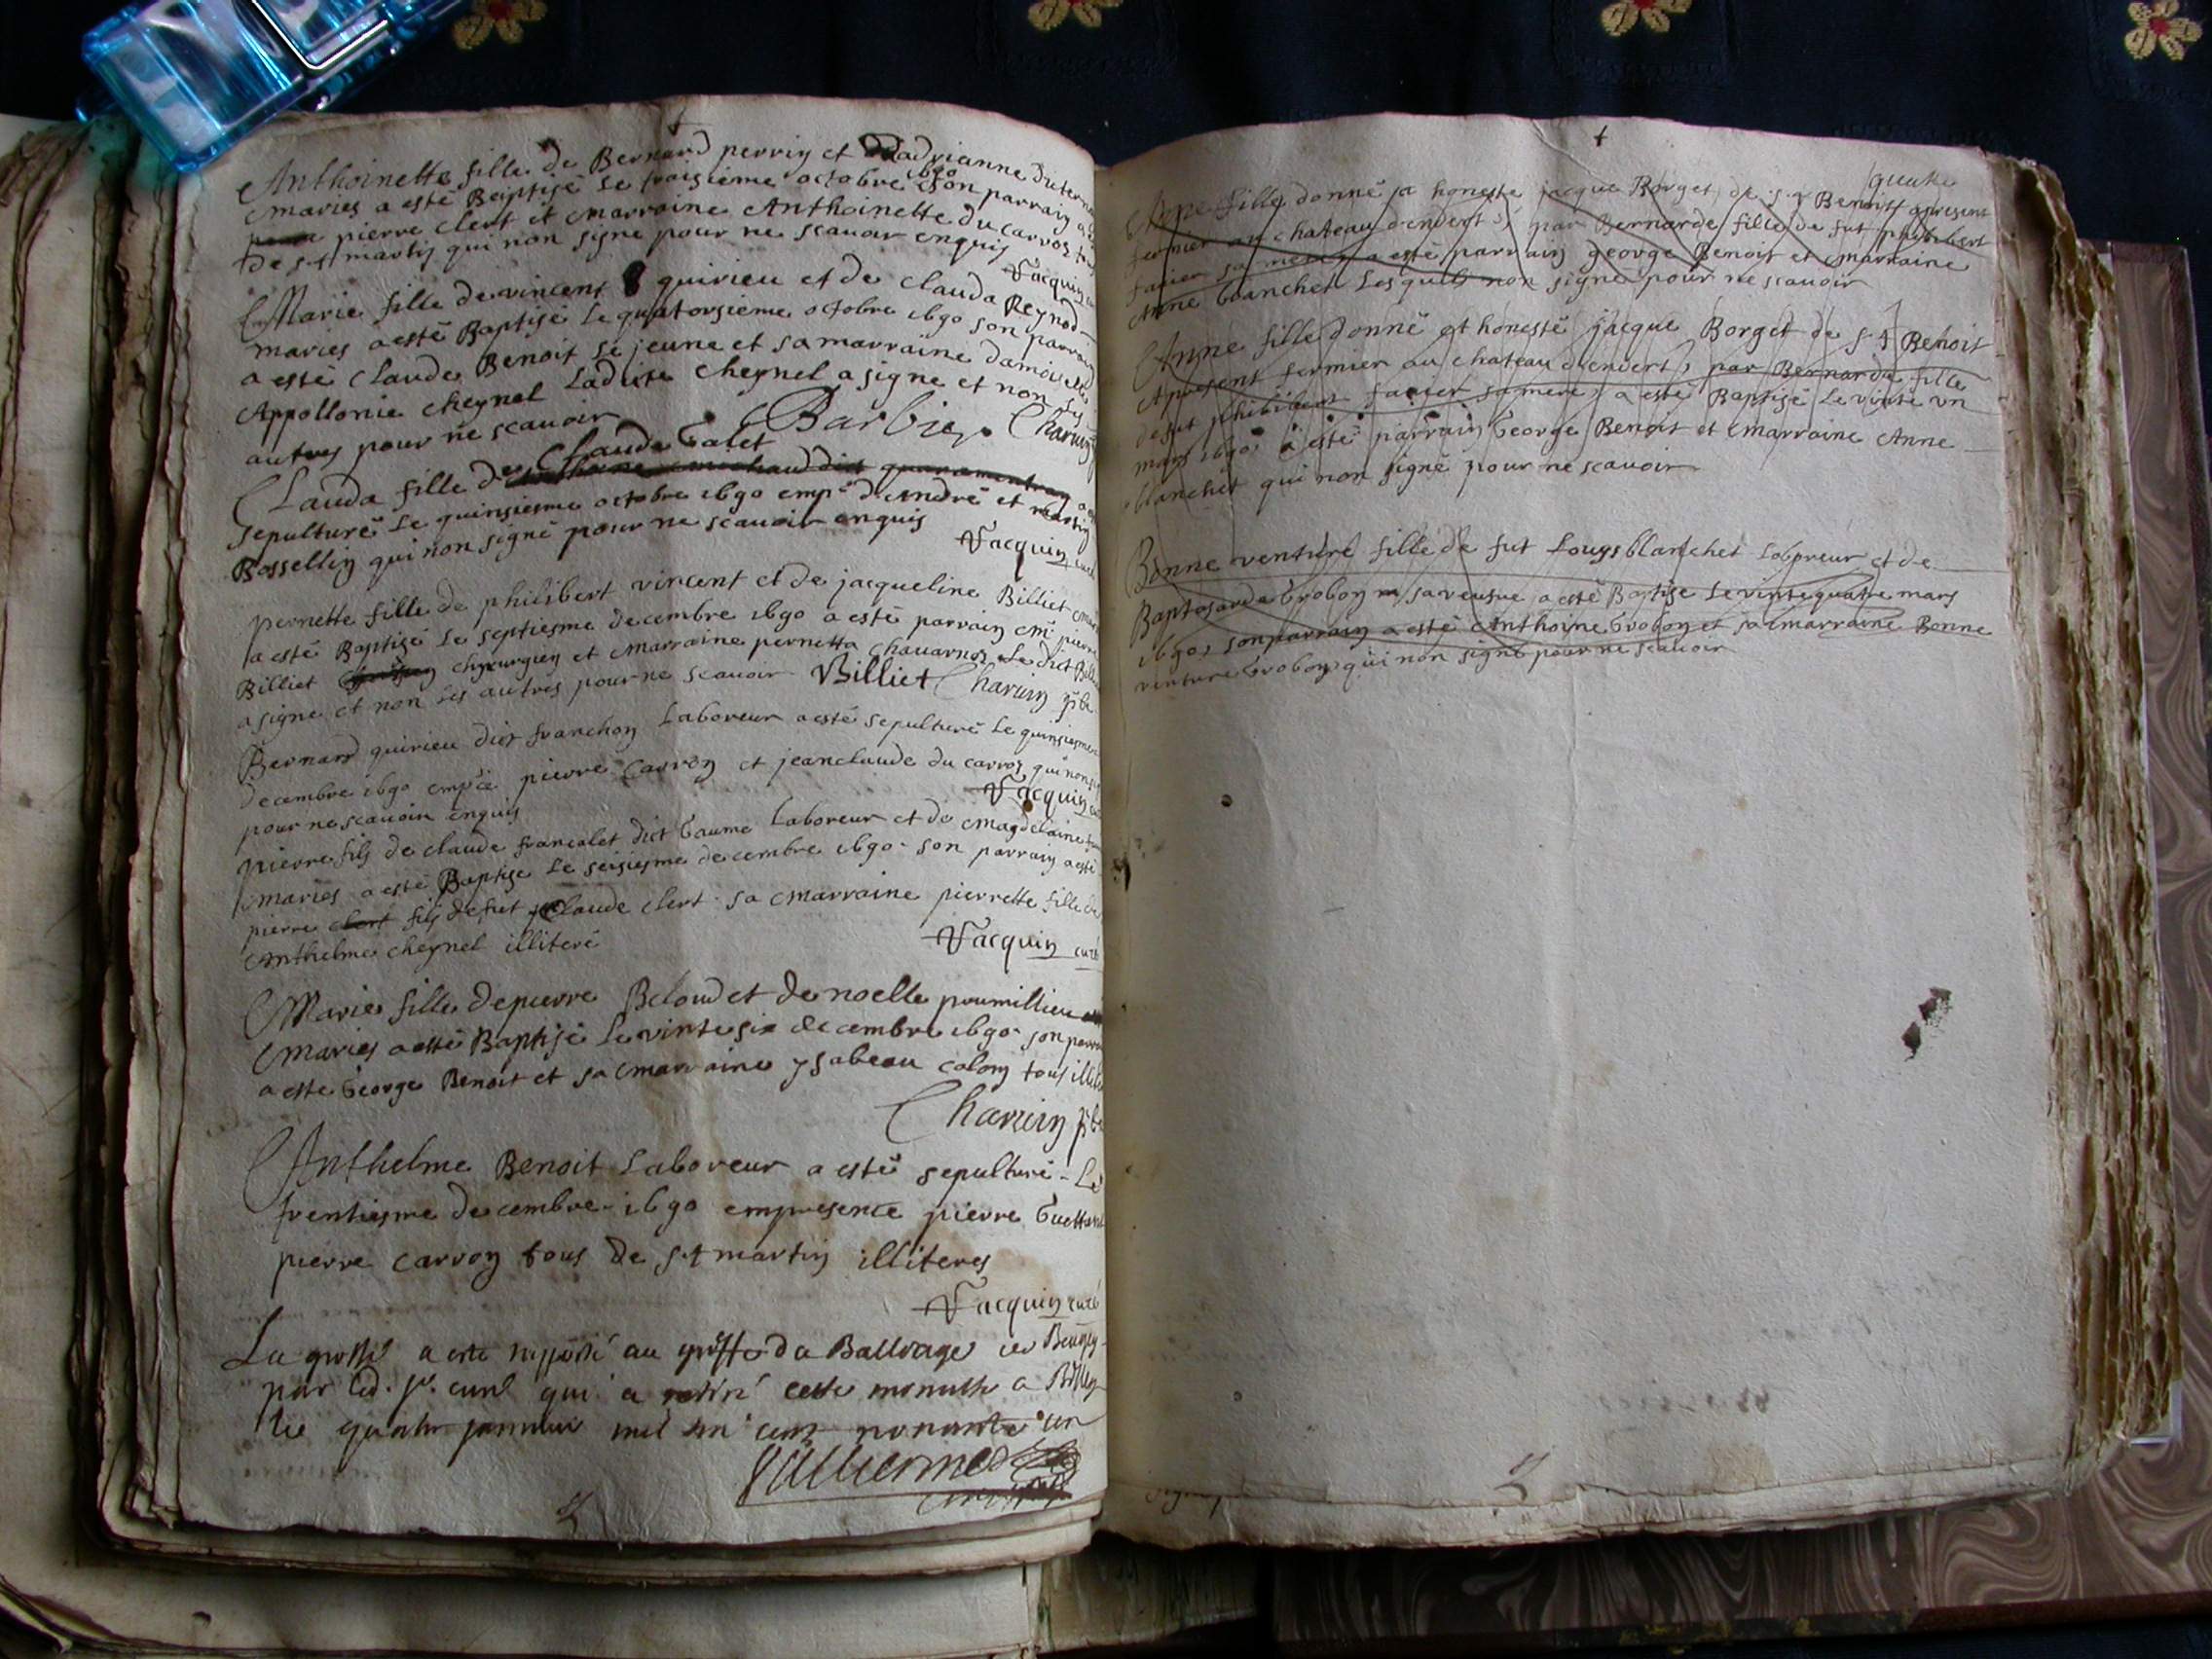 Anthoinette fille de Bernard perrin et adrianne
maries a esté Baptisé le troisième octobre 1690 son parrain a
pierre clert et marraine Anthoinette du carroz
de st martin qui non signe pour ne scavoir enquis
Jacquin
Marie fille de vincent quirieu et de clauda Reynod
maries a esté Baptisé le quatorsième octobre 1690 son parrain
a esté claude Benoit le jeune et sa marraine damoiselle
Appollonie cheynel Ladite cheynel a signe et non les
autres pour ne scavoir
Barbier Charuin
Clauda fille de Claude Galet
sepulturé le quinsiesme octobre 1690 emp. d'André et martin
Bossellin qui non signé pour ne scavoir enquis
Jacquin curé
pernette fille de philibert vincent et de jacqueline Billiet
a esté Baptisé le septiesme decembre 1690 a esté parrain mr pierre
Billiet chyrurgien et marraine pernetta chavarnoz Le dict
a signe et non les autres pour ne scavoir Billiet Charuin
Bernard quirieu dict franchon Laboreur a esté sepulturé le quinsiesme
decembre 1690 empce pierre Carron et jeanclaude du carroz qui non
pour ne scavoir enquis
Jacquin
pierre fils de claude francalet dict Gaume Laboreur et de Magdelaine
maries a esté Baptise le seisiesme decembre 1690 son parrain a esté
pierre clert fils de fut Claude clert sa marraine pierrette fille de
Anthelme cheynel illiteré
Jacquin curé
Marie fille de pierre Beloud et de noelle prumillieu
maries a esté Baptisé le vinte six decembre 1690 son parrain
a esté George Benoit et sa marraine ysabeau colom tous
Charuin
Anthelme Benoit Laboreur a esté sepulturé Le
trentiesme decembre 1690 empresence pierre
pierre carron tous de st martin illiteres
Jacquin curé
La grosse a esté au greffe du Balliage de Beugey
par led. sr. curé qui a retiré cette minutte a Belley
le quatre janvier mil six cent nonante un
Vulliermod
quatre
Anne fille donné a honeste jacque Borget de st Benoit apresent
fermier au chateau d'endert par Bernarde fille de fut philibert
favier sa mere a esté parrain george Benoit et marraine
Anne blanchet Lesquels non signe pour ne scavoir
Anne fille donné et honesté jacque Borget de st Benoit
Apresent fermier au chateau d'endert par Bernarde fille
de fut philibert favier sa mere a esté Baptisé Le vinte un
mars 1690 a esté parrain George Benoit et marraine Anne
blanchet qui non signe pour ne scavoir
Bonne venture fille de fut Louys blanchet Laboreur et de
Grobon sa veusve a esté Baptise Le vinte quatre mars
1690 son parrain a esté Anthoine Grobon et sa marraine Bonne
venture Grobon qui non signe pour ne scavoir